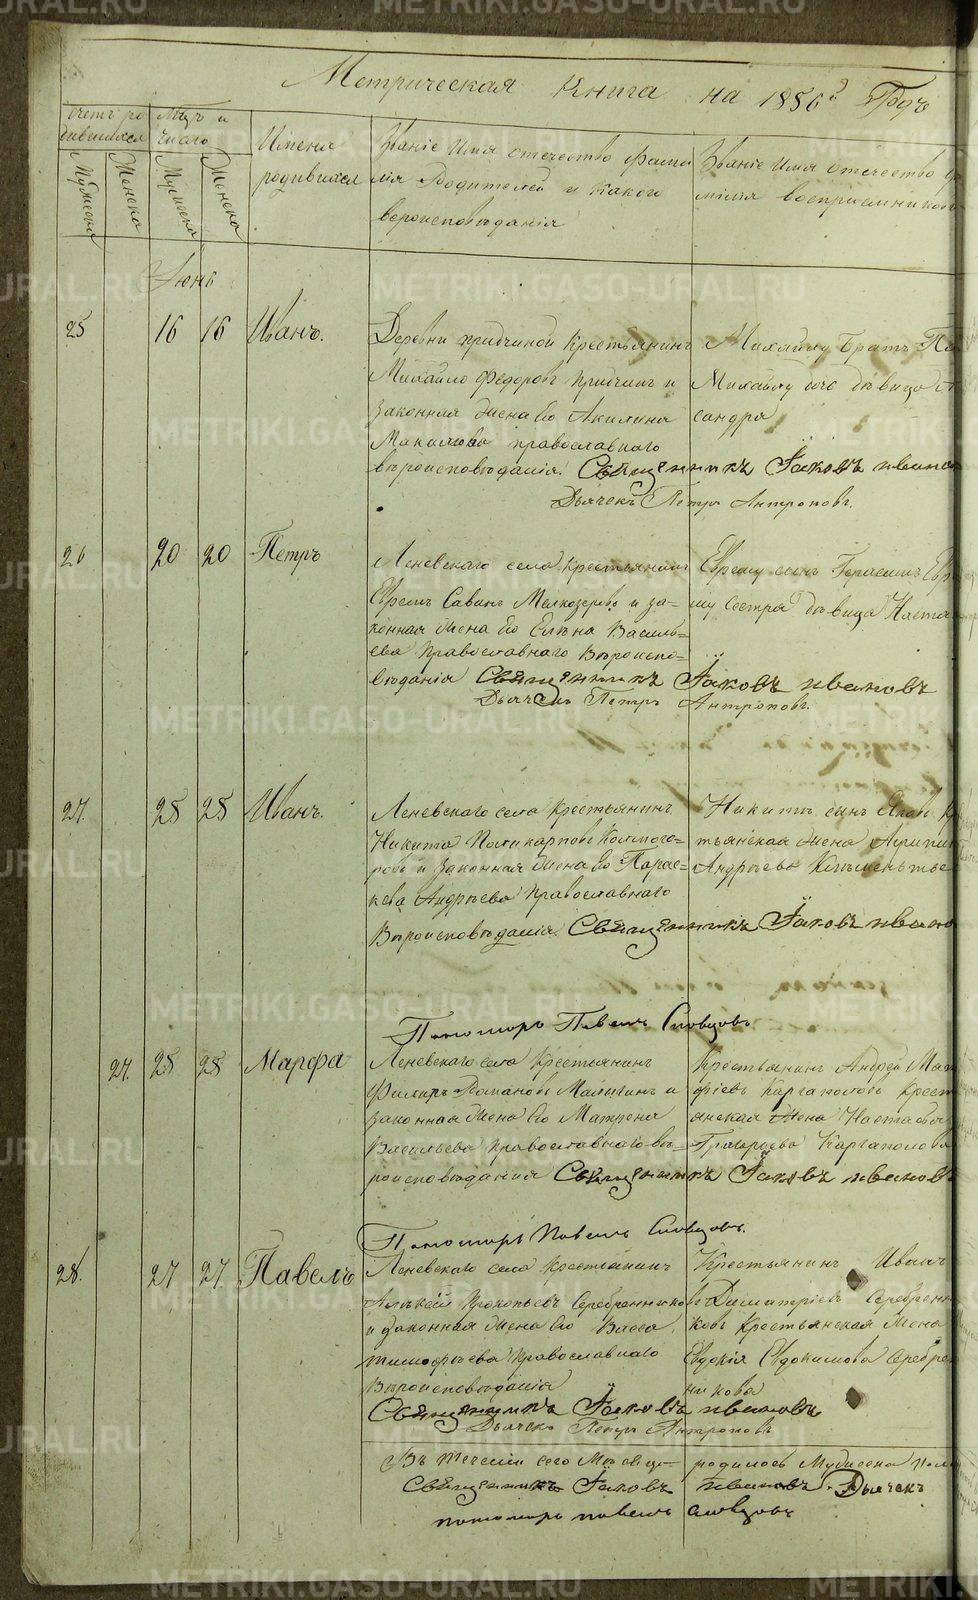 Метрическая Книга на 1856й Годъ
счетъ ро
дившихся
Мужеска
Женска
Мцъ и
число
Мужеска
Женска
Имена
родившихся
Званіе Имя отечество фами
лія Родителей и какого
вероисповѣданія
Званіе Имя отечество фа
милія воспріемниковъ
Іюнь
25
16 16 Иванъ.
Деревни крестьянинъ
Михайло Федоровъ и
законная жена его Акилина
православнаго
вѣроисповѣданія. Священникъ Іаковъ Ивановъ
Дьячекъ Петръ Антроповъ.
Михайлу братъ
Михайлу дѣвица
сандра
26
20 20 Петръ
Леневскаго села крестьянинъ
Ефремъ Савинъ Мелкозеровъ и за-
конная жена его Елена Василь-
ева Православнаго Вѣроиспо-
вѣданія Священникъ Іаковъ Ивановъ
Дьячекъ Петръ Антроповъ.
Ефрему сынъ Герасимъ Ефр
му сестра дѣвица Наста
27.
25 25 Иванъ.
Леневскаго села Крестьянинъ
Никита Поликарповъ Колмого-
ровъ и законная жена его Парас-
кева Андреева Православнаго
Вѣроисповѣданія. Священникъ Іаковъ Ивано
Пономарь Павелъ Словцовъ
Никитѣ сынъ Яковъ Кр
тьянская жена
Андреева
27. 25 25 Марфа
Леневскаго села Крестьянинъ
Романовъ и
законная жена его Матрена
Васильева православнаго вѣ-
роисповѣданія Священникъ Іаковъ Ивановъ
Пономарь Павелъ Словцовъ.
Крестьянинъ Андрей Мат
фіевъ Каргаполовъ крест
янская жена Настасья
Григорьева Каргаполова
28.
27 27 Павелъ
Леневскаго села крестьянинъ
Алексей Прокопьевъ Серебренниковъ
и законная жена его Васса
Тимофеева Православнаго
Вѣроисповѣданія
Священникъ Іаковъ Ивановъ
Дьячекъ Петръ Антроповъ
Крестьянинъ Иванъ
Димитріевъ Серебрен
ковъ Крестьянская жена
Евдокія Евдокимова Серебре
никова
Въ теченіи сего Месяца родилось Мужеска пола
Священникъ Іаковъ Ивановъ. Дьячекъ
пономарь павелъ словцовъ
METRIKI.GASO-URAL.RU